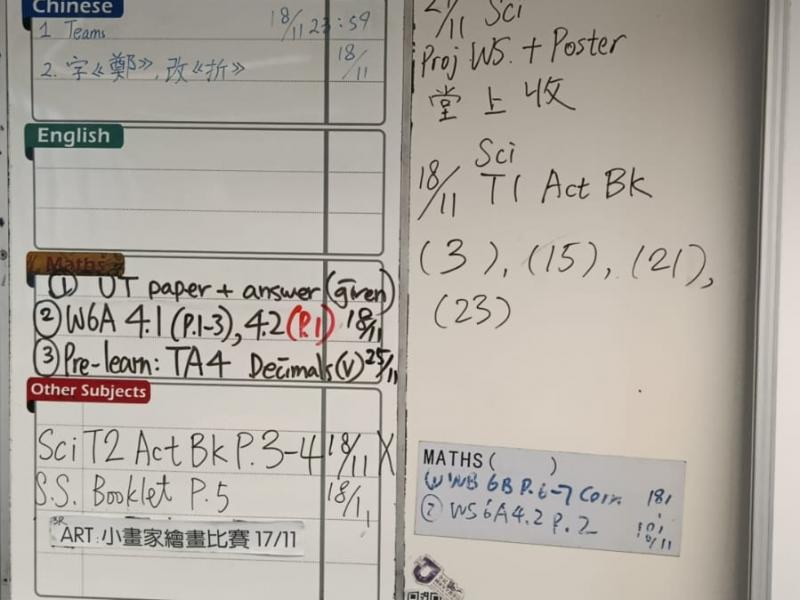 Chinese
1 Teams 18/11 23:59
2. 字《鄭》, 改《折》 18/11
English
Maths
① UT paper + answer (given)
② W6A 4.1 (P.1-3), 4.2 (P.1) 18/11
③ Pre-learn: TA4 Decimals (V) 25/11
Other Subjects
Sci T2 Act Bk P.3-4 18/11 X
S.S. Booklet P.5 18/11
ART:小畫家繪畫比賽 17/11
/11 Sci
Proj WS. + Poster
堂上收
Sci
18/11 T1 Act Bk
(3), (15), (21),
(23)
MATHS ( )
WB 6B P.6-7 Corr. 18
② WS 6A 4.2 P.2
/11